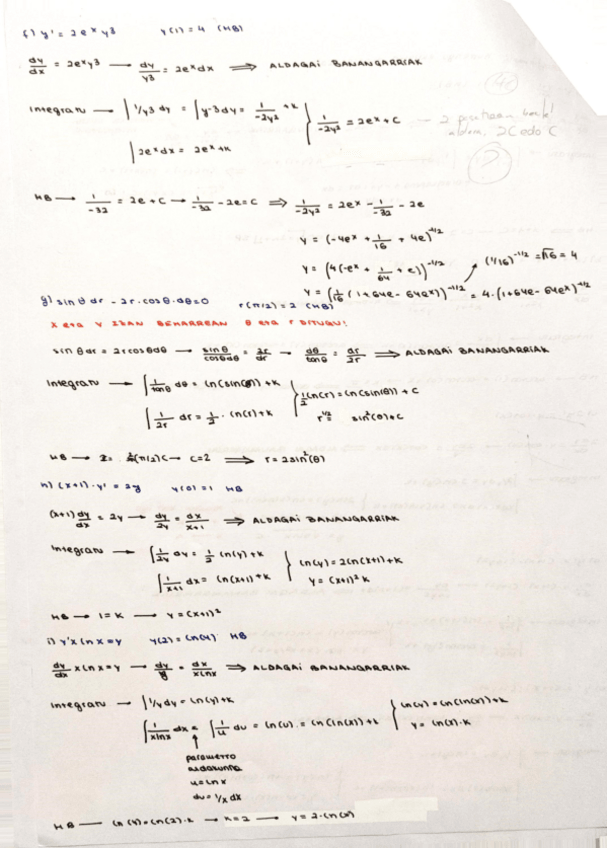 f) y' = 2e^x y^3    y(1) = 4 (HB)
dy/dx = 2e^x y^3 → dy/y^3 = 2e^x dx ⇒ ALDAGAI BANANGARRIAK
Integratu → ∫ 1/y3 dy = ∫ y-3 dy = 1/-2y² + K } 1/-2y² = 2e^x + C → 2
∫ 2e^x dx = 2e^x + K    2C edo C
HB → 1/-32 = 2e + C → 1/-32 - 2e = C ⇒ 1/-2y² = 2e^x - 1/-32 - 2e
y = (-4e^x + 1/16 + 4e)^-1/2
y = (4(-e^x + 1/64 + e))^-1/2    (1/16)^-1/2 = √16 = 4
y = (1/16 (1+64e - 64e^x))^-1/2 = 4·(1+64e - 64e^x)^-1/2
g) sin θ dr - 2r·cos θ·dθ = 0    r(π/2) = 2 (HB)
X eta Y IZAN BEHARREAN θ eta r DITUGU!
sin θ dr = 2r cos θ dθ → sin θ/cos θ dθ = 2r/dr → dθ/tan θ = dr/2r ⇒ ALDAGAI BANANGARRIAK
Integratu → ∫ 1/tan θ dθ = ln(sin(θ)) + K } 1/2 ln(r) = ln(sin(θ)) + C
∫ 1/2r dr = 1/2 · ln(r) + K    r^1/2 = sin²(θ) + C
HB → 2 = (π/2) C → C = 2 ⇒ r = 2 sin²(θ)
h) (x+1)·y' = 2y    y(0) = 1 HB
(x+1) dy/dx = 2y → dy/2y = dx/x+1 ⇒ ALDAGAI BANANGARRIAK
Integratu → ∫ 1/2y dy = 1/2 ln(y) + K { ln(y) = 2ln(x+1) + K
∫ 1/x+1 dx = ln(x+1) + K    y = (x+1)² K
HB → 1 = K → y = (x+1)²
i) y' x ln x = y    y(2) = ln(4) HB
dy/dx x ln x = y → dy/y = dx/x ln x ⇒ ALDAGAI BANANGARRIAK
Integratu → ∫ 1/y dy = ln(y) + K { ln(y) = ln(ln(x)) + K
∫ 1/x ln x dx = ∫ 1/u du = ln(u) = ln(ln(x)) + K    y = ln(x)·K
parametro
aldakuntza
u = ln x
du = 1/x dx
HB → ln(4) = ln(2)·K → K = 2 → y = 2·ln(x)